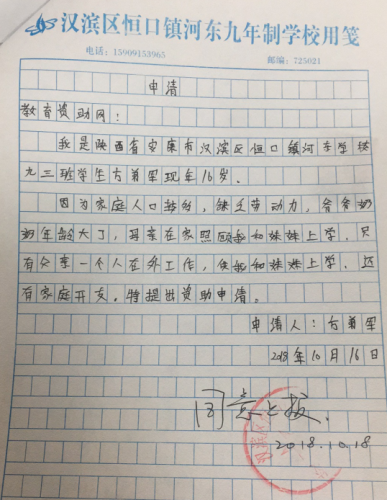 汉滨区恒口镇河东九年制学校用笺
电话：15909153965 邮编：725021
申请
教育资助网：
我是陕西省安康市汉滨区恒口镇河东学校
九三班学生方弟军现年16岁。
因为家庭人口较多，缺乏劳动力，爷爷奶
奶年龄大了，母亲在家照顾我和妹妹上学，只
有父亲一个人在外工作，供我和妹妹上学，还
有家庭开支。特提出资助申请。
申请人：方弟军
2018年10月16日
同意上报.
2018.10.18